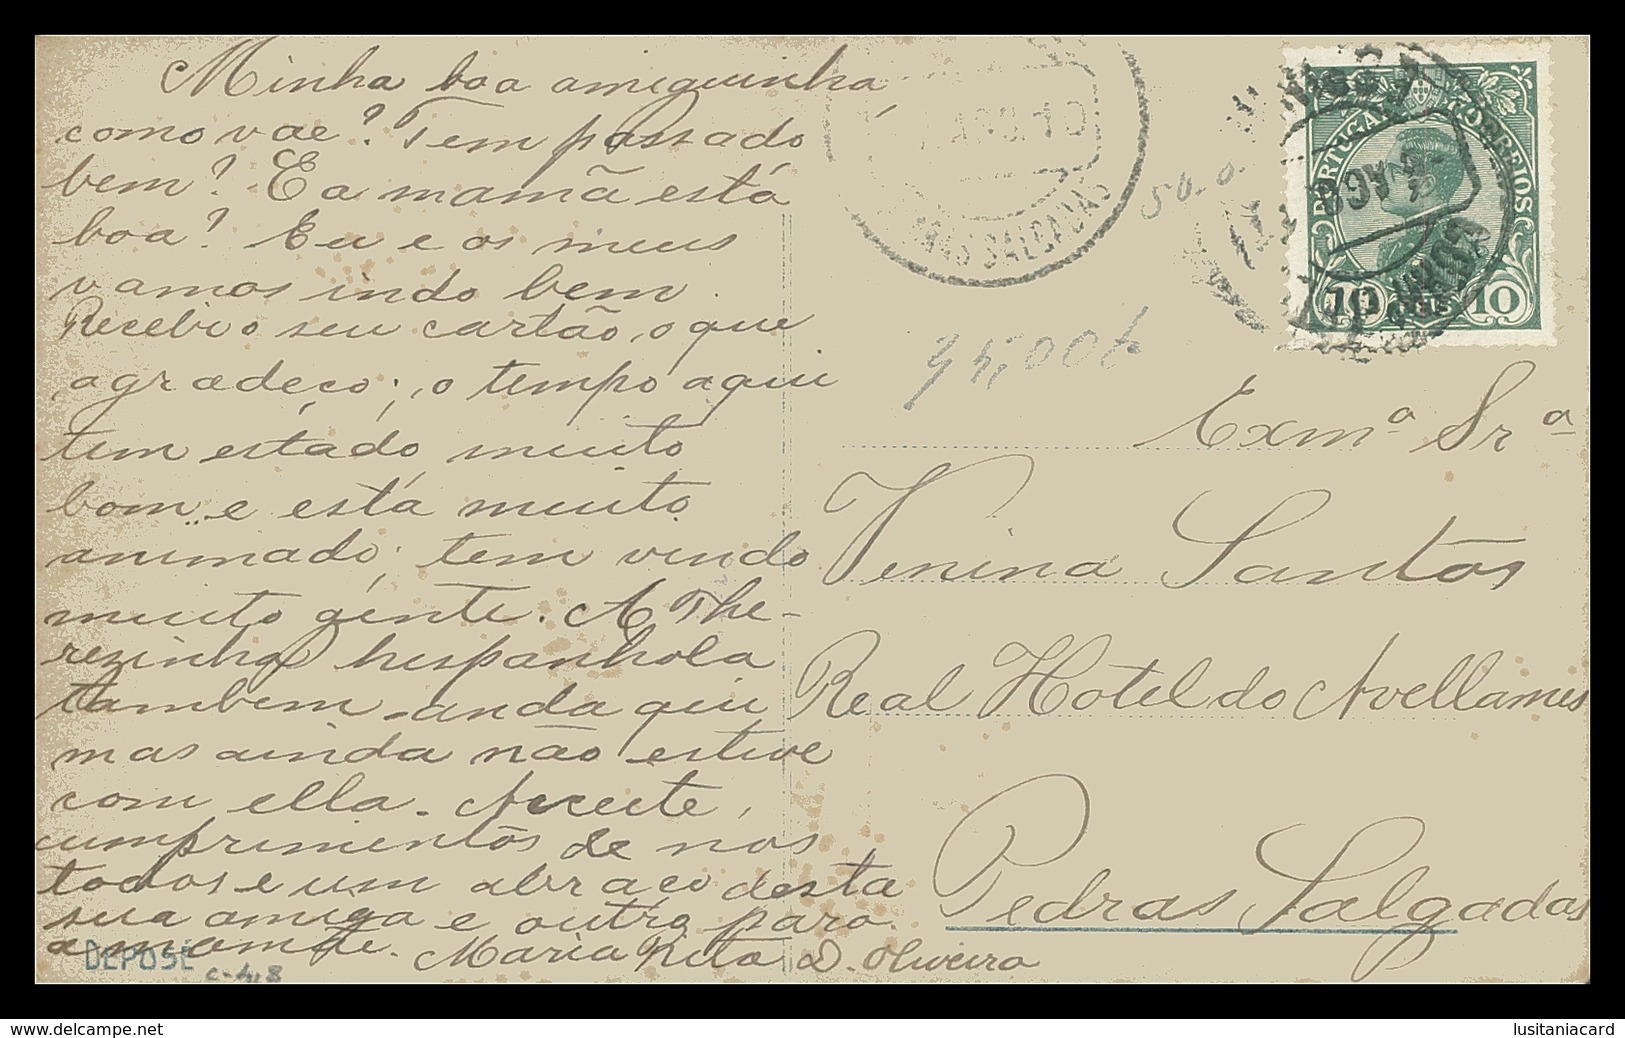 Minha boa amiguinha,
como vae? Tem passado
bem? E a mamã está
boa? Eu e os meus
vamos indo bem.
Recebi o seu cartão, o que
agradeço; o tempo aqui
tem estado muito
bom e está muito
animado; tem vindo
muito gente. A The-
rezinha hespanhola
tambem anda qui
mas ainda não estive
com ella. Acceite,
cumprimentos de nos
todos e um abraço desta
sua amiga e outro para
a mamã. Maria Rita D. Oliveira
DEPOSÉ
PEDRAS SALGADAS
50.0.
95,00
PORTUGAL CORREIOS
10 REIS 10
Exmª Srª
Venina Santos
Real Hotel do Avellames
Pedras Salgadas
www.delcampe.net
lusitaniacard